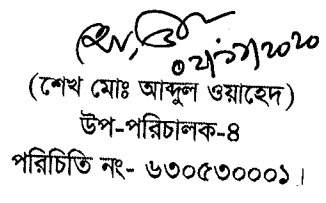 (শেখ মোঃ আব্দুল ওয়াহেদ)
উপ-পরিচালক-৪
পরিচিতি নং- ৬৩০৫৩০০০১।